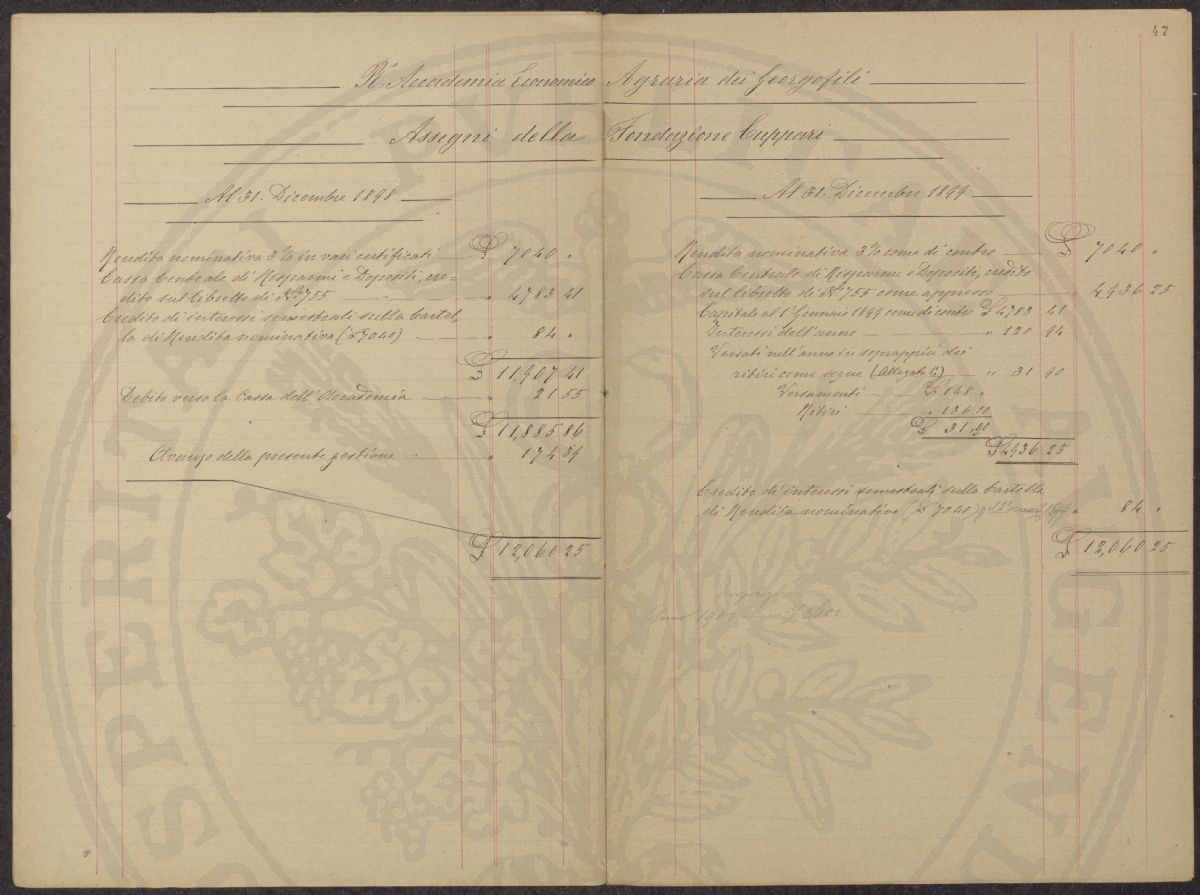 47
R.ª Accademia Economico Agraria dei Georgofili
Assegni della Fondazione Cuppari
Al 31. Dicembre 1898
Rendita nominativa 3% in vari certificati £ 7040 "
Cassa Centrale di Risparmi e Depositi, cre=
dito sul libretto di N.º 755 " 4783 41
Credito di interessi semestrali sulla Cartel,
la di Rendita nominativa (£ 7040) " 84 "
£ 11,907 41
Debito verso la Cassa dell'Accademia " 21 55
£ 11,885 86
Avanzo della presente gestione " 174 39
£ 12,060 25
Al 31. Dicembre 1899
Rendita nominativa 3% come di contro £ 7040 "
Cassa Centrale di Risparmi e Depositi, credito
sul libretto di N.º 755 come appresso " 4936 25
Capitale al 1º Gennaio 1899 come di contro £ 4783 41
Interessi dell'anno " 120 94
Versati nell'anno in soprappiù dei
ritiri come segue (Allegato C) " 31 90
Versamenti £ 168 "
Ritiri " 136 10
£ 31,90
£ 4936 25
Credito di interessi semestrali sulla Cartella
di Rendita nominativa (£ 7040) " 84 "
£ 12,060 25
Anno 1900
PROSPERITATI PUBLICAE AUGENDAE